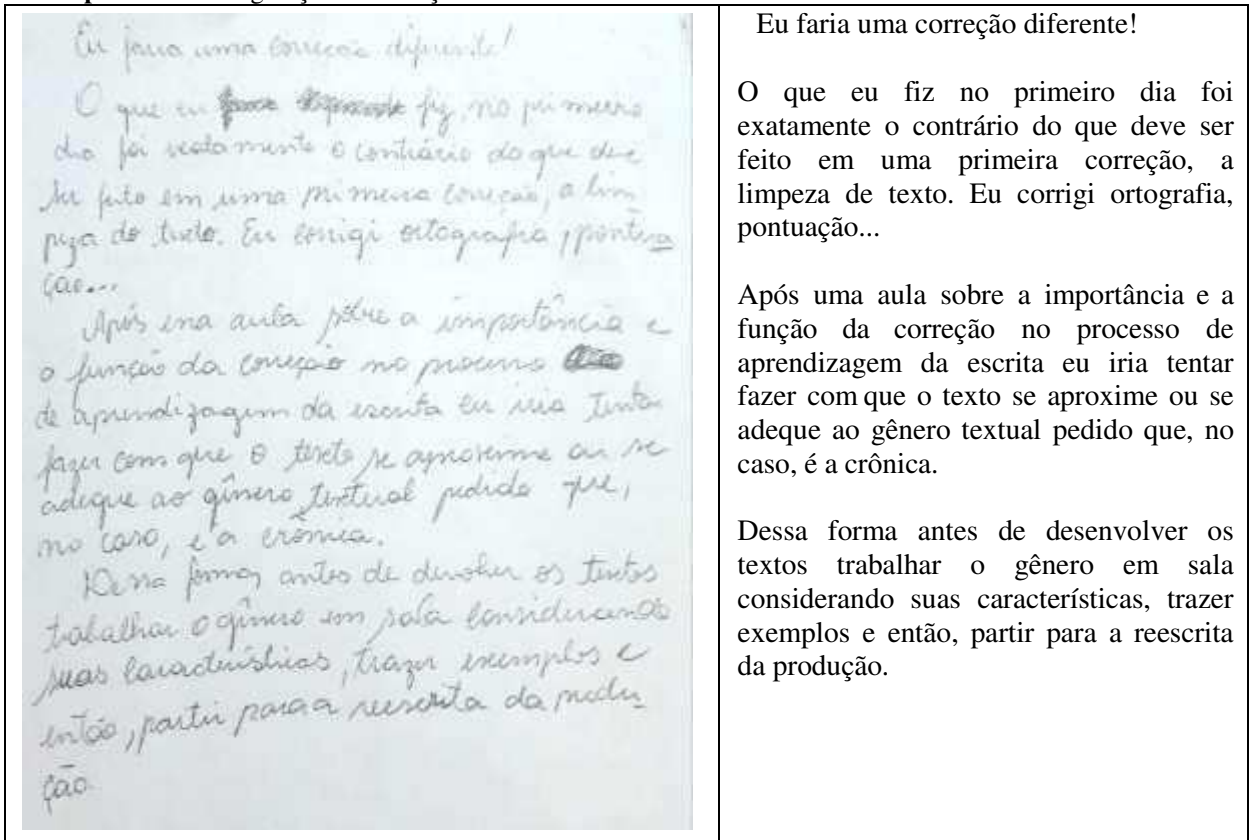 Eu faria uma correção diferente!
O que eu fiz, no primeiro
dia foi exatamente o contrário do que deve
ser feito em uma primeira correção, a lim
peza do texto. Eu corrigi ortografia, pontua
ção...
Após essa aula sobre a importância e
a função da correção no processo
de aprendizagem da escrita eu iria tentar
fazer com que o texto se aproxime ou se
adeque ao gênero textual pedido que,
no caso, é a crônica.
Dessa forma, antes de devolver os textos
trabalhar o gênero em sala considerando
suas características, trazer exemplos e
então, partir para a reescrita da produ
ção.
Eu faria uma correção diferente!
O que eu fiz no primeiro dia foi
exatamente o contrário do que deve ser
feito em uma primeira correção, a
limpeza de texto. Eu corrigi ortografia,
pontuação...
Após uma aula sobre a importância e a
função da correção no processo de
aprendizagem da escrita eu iria tentar
fazer com que o texto se aproxime ou se
adeque ao gênero textual pedido que, no
caso, é a crônica.
Dessa forma antes de desenvolver os
textos trabalhar o gênero em sala
considerando suas características, trazer
exemplos e então, partir para a reescrita
da produção.